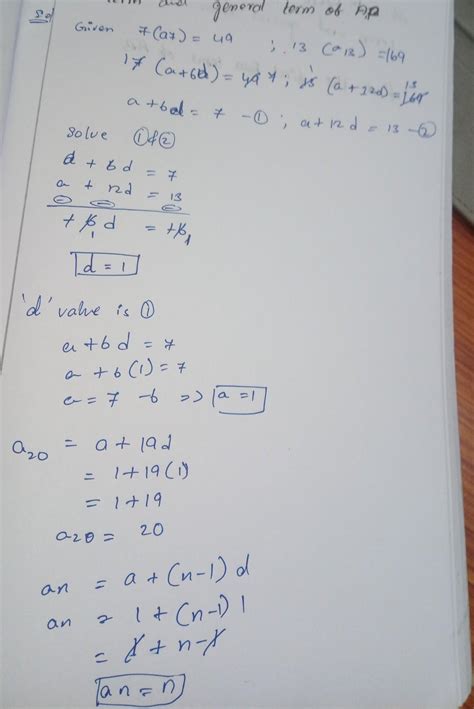 term and general term of AP
Sol
Given 7(a7) = 49 ; 13 (a13) = 169
7 (a+6d) = 49 7 ; 13 (a+12d) = 169 13
a+6d = 7 -① ; a+12d = 13 -②
solve ①&②
a + 6d = 7
a + 12d = 13
+6d = +6
d = 1
'd' value is ①
a+6d = 7
a + 6(1) = 7
a = 7 -6 => a = 1
a20 = a + 19d
= 1+19(1)
= 1+19
a20 = 20
an = a + (n-1) d
an = 1 + (n-1) 1
= 1 + n - 1
an = n